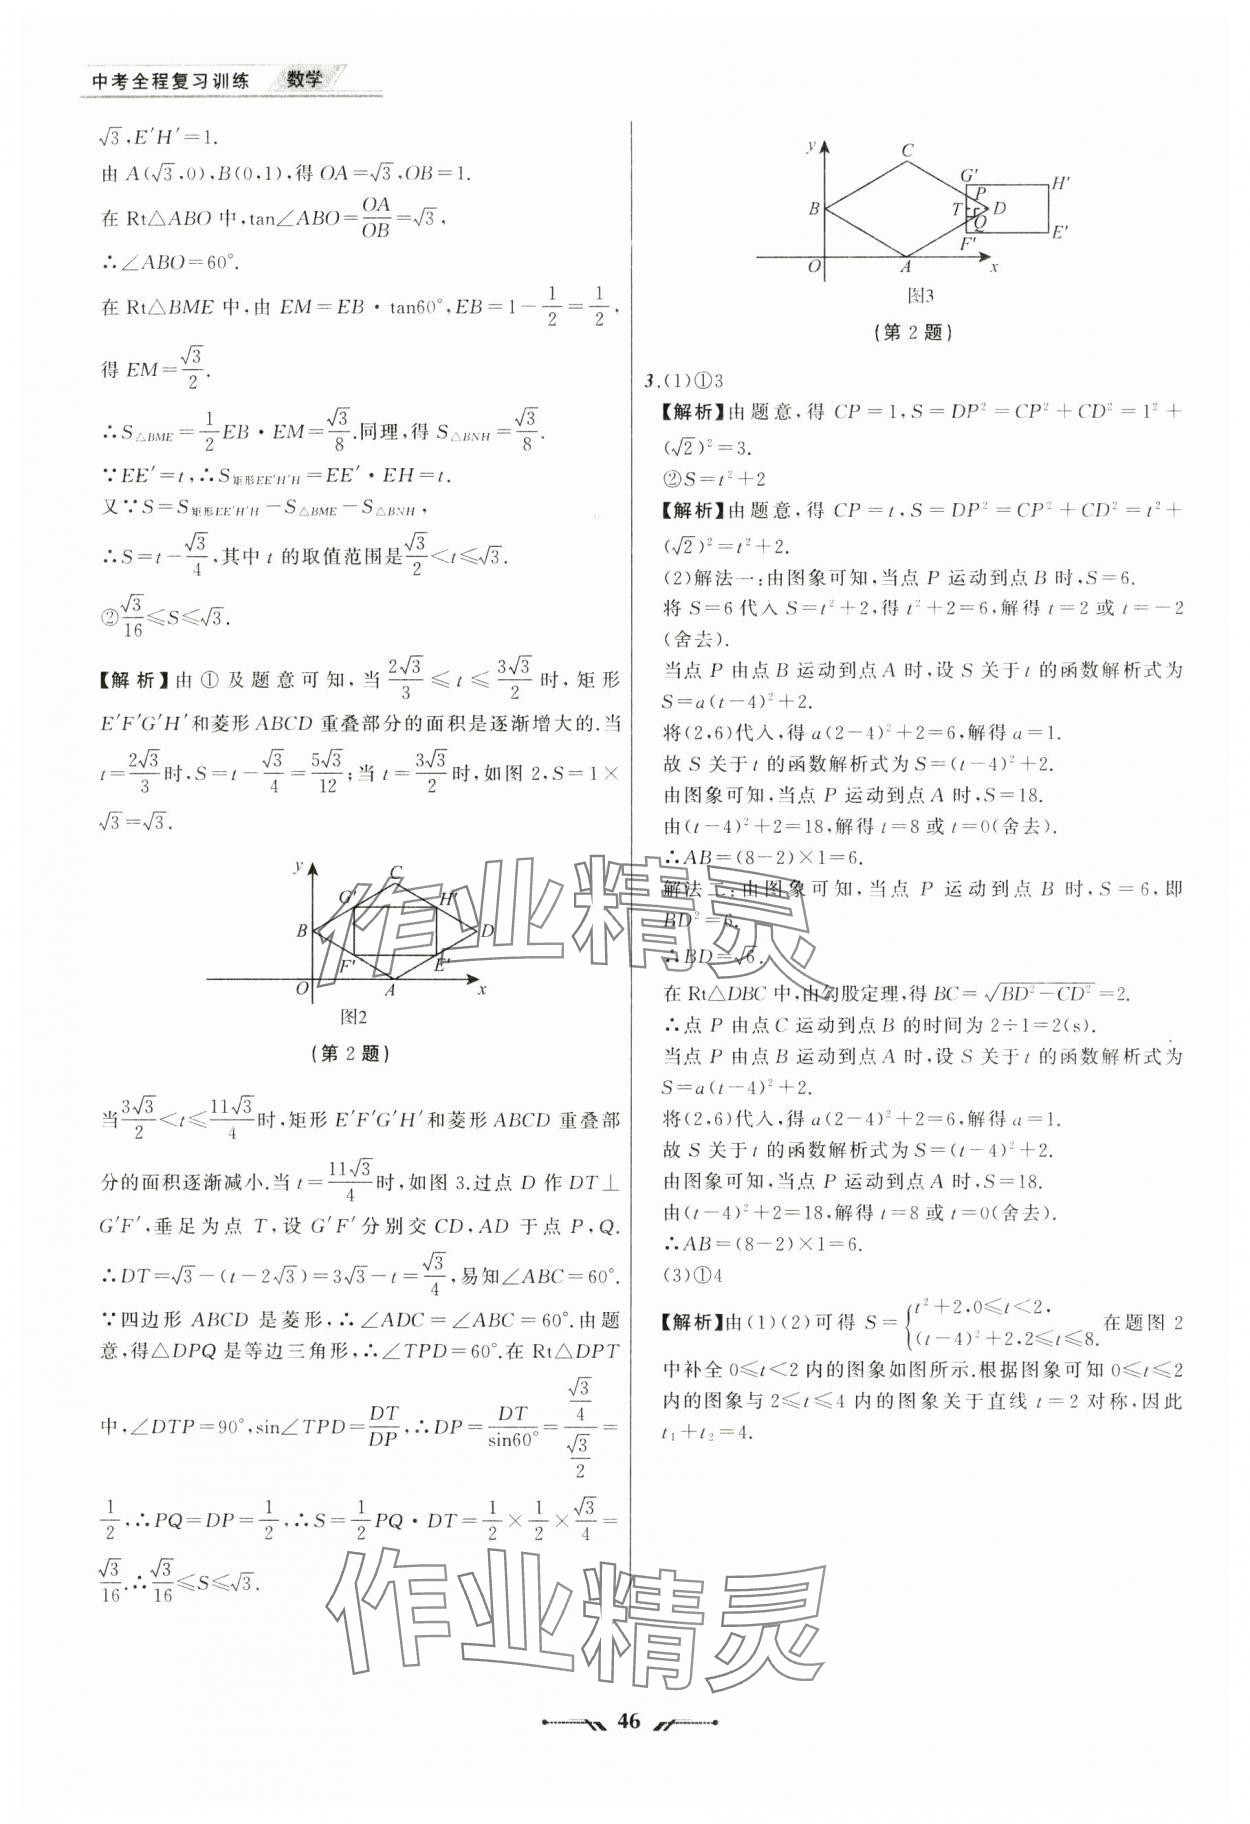 中考全程复习训练 数学
√3,E′H′=1.
由 A(√3,0),B(0,1),得 OA=√3,OB=1.
在 Rt△ABO 中,tan∠ABO=OA/OB=√3,
∴∠ABO=60°.
在 Rt△BME 中,由 EM=EB·tan60°,EB=1-1/2=1/2,
得 EM=√3/2.
∴S△BME=1/2EB·EM=√3/8.同理,得 S△BNH=√3/8.
∵EE′=t,∴S矩形EE′H′H=EE′·EH=t.
又∵S=S矩形EE′H′H-S△BME-S△BNH,
∴S=t-√3/4,其中 t 的取值范围是√3/2<t≤√3.
②√3/16≤S≤√3.
【解析】由①及题意可知,当2√3/3≤t≤3√3/2时,矩形
E′F′G′H′和菱形 ABCD 重叠部分的面积是逐渐增大的.当
t=2√3/3时,S=t-√3/4=5√3/12;当 t=3√3/2时,如图 2,S=1×
√3=√3.
y
C
G′
H′
B
D
F′
E′
O
A
x
图2
(第 2 题)
当3√3/2<t≤11√3/4时,矩形 E′F′G′H′和菱形 ABCD 重叠部
分的面积逐渐减小.当 t=11√3/4时,如图 3.过点 D 作 DT⊥
G′F′,垂足为点 T,设 G′F′分别交 CD,AD 于点 P,Q.
∴DT=√3-(t-2√3)=3√3-t=√3/4,易知∠ABC=60°.
∵四边形 ABCD 是菱形,∴∠ADC=∠ABC=60°.由题
意,得△DPQ 是等边三角形,∴∠TPD=60°.在 Rt△DPT
中,∠DTP=90°,sin∠TPD=DT/DP,∴DP=DT/sin60°=(√3/4)/(√3/2)=
1/2,∴PQ=DP=1/2,∴S=1/2PQ·DT=1/2×1/2×√3/4=
√3/16.∴√3/16≤S≤√3.
y
C
G′
H′
P
B
T
D
Q
F′
E′
O
A
x
图3
(第 2 题)
3.(1)①3
【解析】由题意,得 CP=1,S=DP²=CP²+CD²=1²+
(√2)²=3.
②S=t²+2
【解析】由题意,得 CP=t,S=DP²=CP²+CD²=t²+
(√2)²=t²+2.
(2)解法一:由图象可知,当点 P 运动到点 B 时,S=6.
将 S=6 代入 S=t²+2,得 t²+2=6,解得 t=2 或 t=-2
(舍去).
当点 P 由点 B 运动到点 A 时,设 S 关于 t 的函数解析式为
S=a(t-4)²+2.
将(2,6)代入,得 a(2-4)²+2=6,解得 a=1.
故 S 关于 t 的函数解析式为 S=(t-4)²+2.
由图象可知,当点 P 运动到点 A 时,S=18.
由(t-4)²+2=18,解得 t=8 或 t=0(舍去).
∴AB=(8-2)×1=6.
解法二:由图象可知,当点 P 运动到点 B 时,S=6,即
BD²=6.
∴BD=√6.
在 Rt△DBC 中,由勾股定理,得 BC=√(BD²-CD²)=2.
∴点 P 由点 C 运动到点 B 的时间为 2÷1=2(s).
当点 P 由点 B 运动到点 A 时,设 S 关于 t 的函数解析式为
S=a(t-4)²+2.
将(2,6)代入,得 a(2-4)²+2=6,解得 a=1.
故 S 关于 t 的函数解析式为 S=(t-4)²+2.
由图象可知,当点 P 运动到点 A 时,S=18.
由(t-4)²+2=18,解得 t=8 或 t=0(舍去).
∴AB=(8-2)×1=6.
(3)①4
【解析】由(1)(2)可得 S={t²+2,0≤t<2, (t-4)²+2,2≤t≤8. 在题图 2
中补全 0≤t<2 内的图象如图所示.根据图象可知 0≤t≤2
内的图象与 2≤t≤4 内的图象关于直线 t=2 对称,因此
t₁+t₂=4.
作业精灵
作业精灵
46